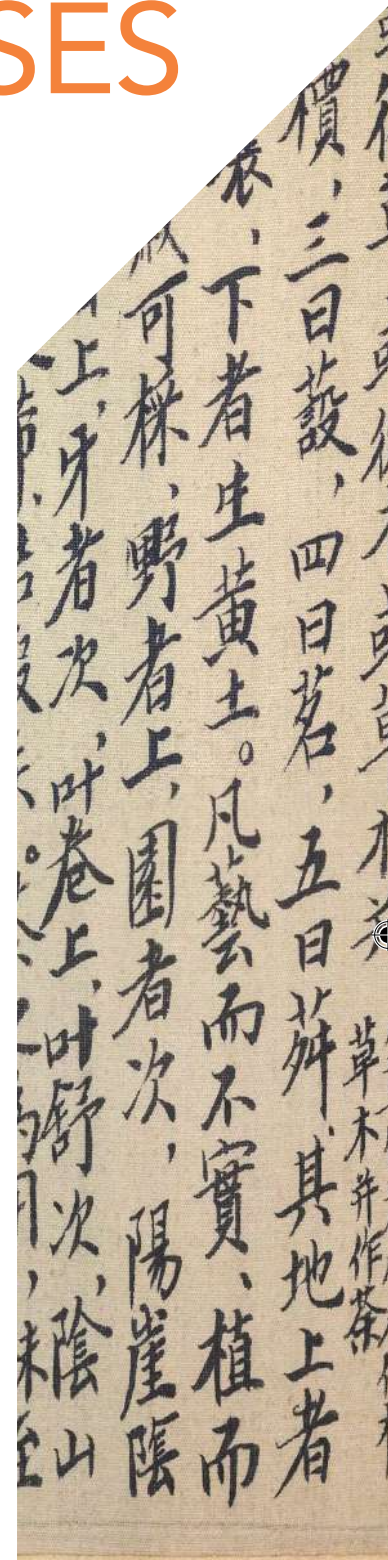 SES
草木并作茶
檟，三曰蔎，四曰茗，五曰荈，其地上者
壤，下者生黄土。凡藝而不實、植而
可採、野者上，園者次，陽崖陰
上，牙者次，叶卷上，叶舒次，陰山